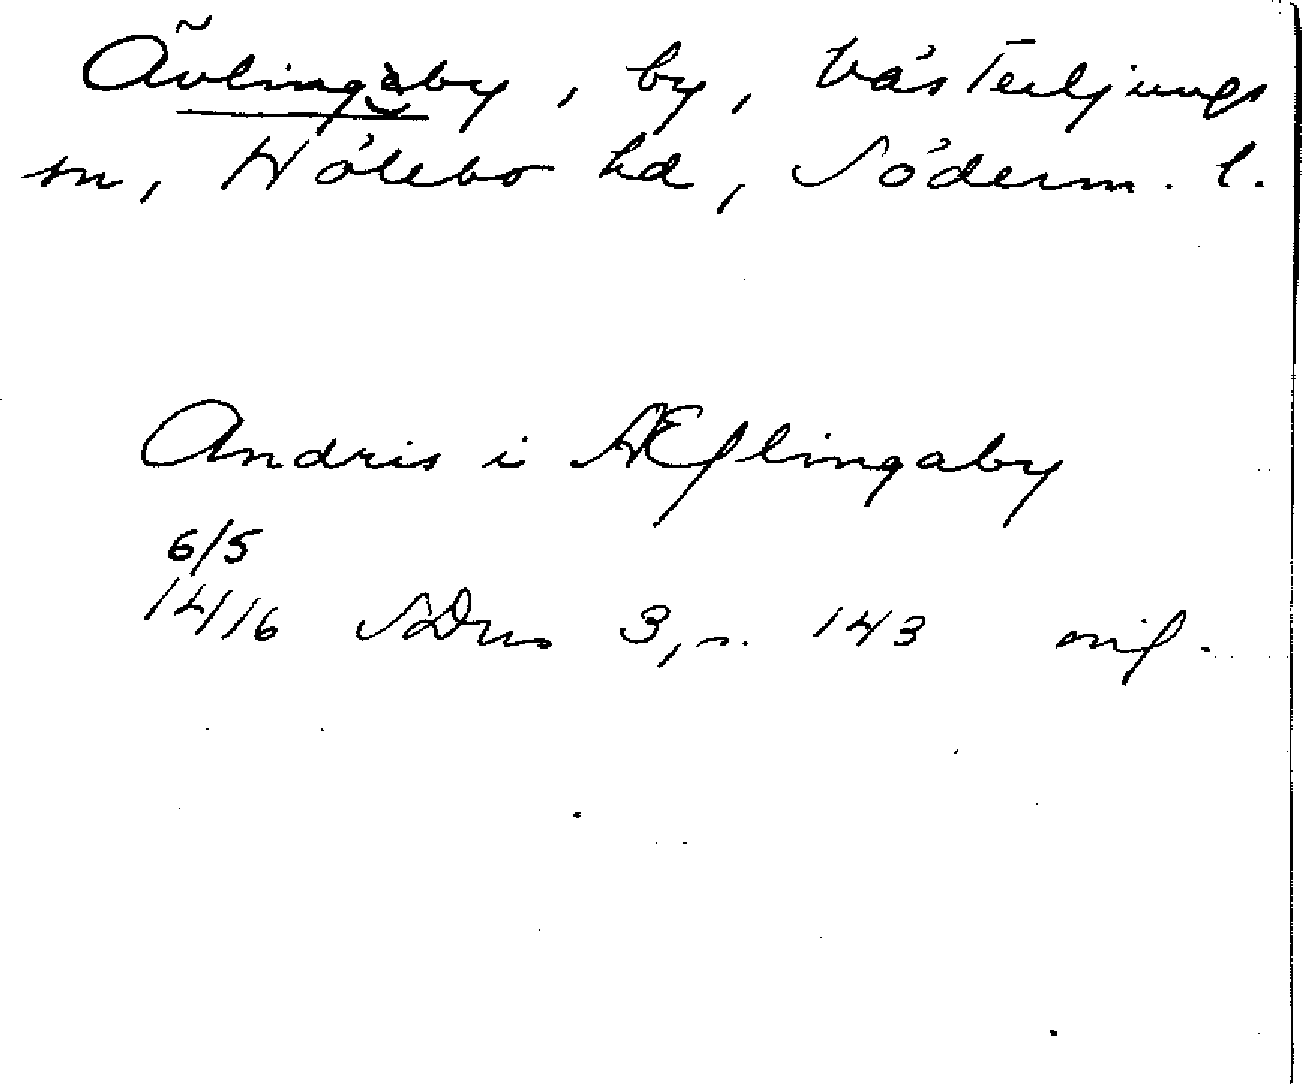 Ävlingaby, by, Västerljungs
sn, Hölebo hd, Söderm. l.
Andris i Æflingaby
6/5
1416 SDns 3, s. 143 mf.